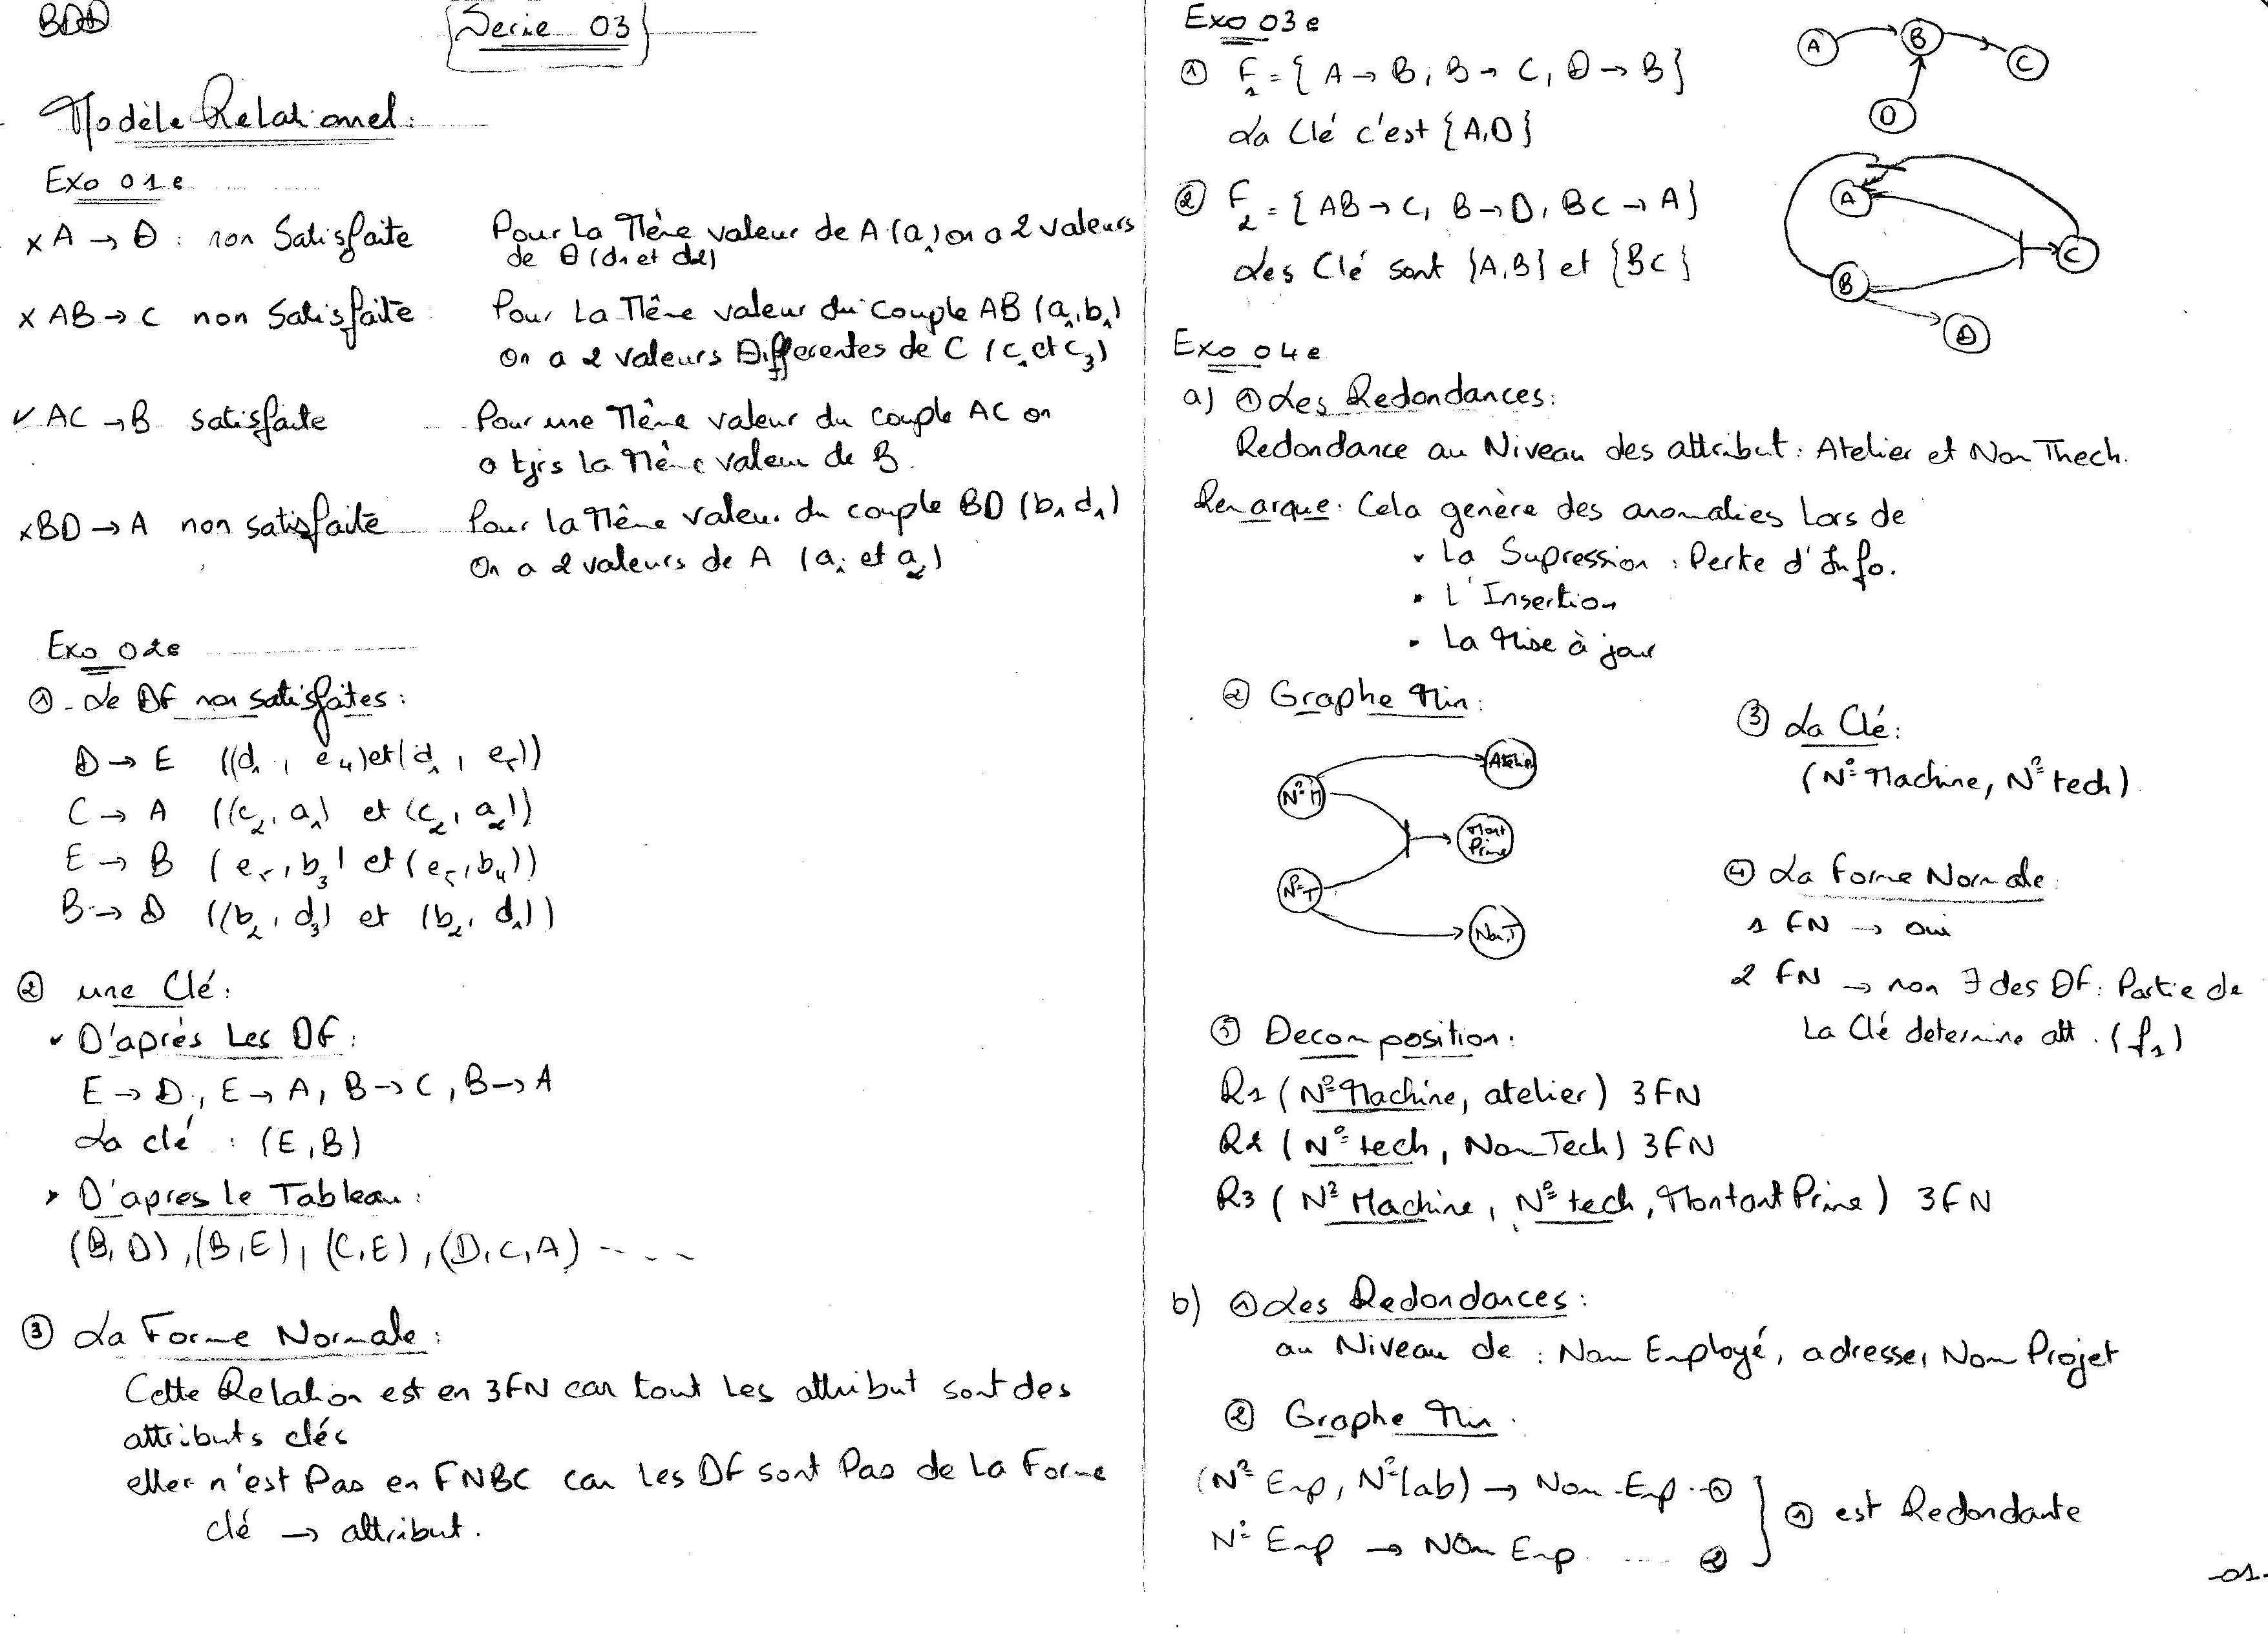 BDD
Serie 03
Modèle Relationel:
Exo 01:
x A → D : non Satisfaite Pour La Même valeur de A (a1) on a 2 valeurs
de D (d1 et d2)
x AB → C non Satisfaite Pour La Même valeur du Couple AB (a1, b1)
On a 2 valeurs Differentes de C (c1 et c3)
✓ AC → B satisfaite Pour une Même valeur du couple AC on
a tjrs la Même valeur de B.
x BD → A non satisfaite Pour la Même valeur du couple BD (b1 d1)
On a 2 valeurs de A (a1 et a2)
Exo 02:
① - Le DF non satisfaites :
D → E ((d1, e4) et (d1, e5))
C → A ((c2, a1) et (c2, a2))
E → B (e5, b3) et (e5, b4))
B → D ((b2, d3) et (b2, d1))
② une Clé :
✓ D'aprés Les DF :
E → D, E → A, B → C, B → A
La clé : (E, B)
• D'apres le Tableau :
(B, D), (B, E), (C, E), (D, C, A) - - - -
③ La Forme Normale :
Cette Relation est en 3FN car tout Les attribut sont des
attributs clés
eller n'est Pas en FNBC car Les DF sont Pas de La Forme
clé → attribut.
Exo 03:
① F1 = { A → B, B → C, D → B }
La Clé c'est {A, D}
A B C D
② F2 = { AB → C, B → D, BC → A }
Les Clé sont {A, B} et {BC}
A B C D
Exo 04:
a) ① Les Redondances :
Redondance au Niveau des attribut : Atelier et Nom Thech.
Remarque : Cela genère des anomalies Lors de
• La Supression : Perte d'Info.
• L'Insertion
• La Mise à jour
② Graphe Min :
N° M
Atelier
Mont Prime
N° T
Nom T
③ La Clé :
(N° Machine, N° tech)
④ La Forme Normale :
1 FN → oui
2 FN → non ∃ des DF : Partie de
La Clé determine att. (f1)
⑤ Decomposition :
R1 (N° Machine, atelier) 3FN
R2 (N° tech, Nom_Tech) 3FN
R3 (N° Machine, N° tech, Montant Prime) 3FN
b) ① Les Redondances :
au Niveau de : Nom Employé, adresse, Nom Projet
② Graphe Min :
(N° Emp, N° lab) → Nom-Emp -- ①
N° Emp → NOm Emp .... ②
① est Redondante
-01-